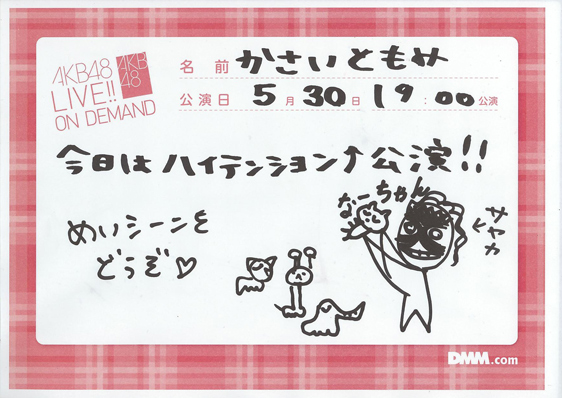 AKB48
LIVE!!
ON DEMAND
AKB
48
名前 かさいともみ
公演日 5月30日 19:00公演
今日はハイテンション↑公演!!
なーちゃん
サヤカ
めいシーンを
どうぞ♡
DMM.com